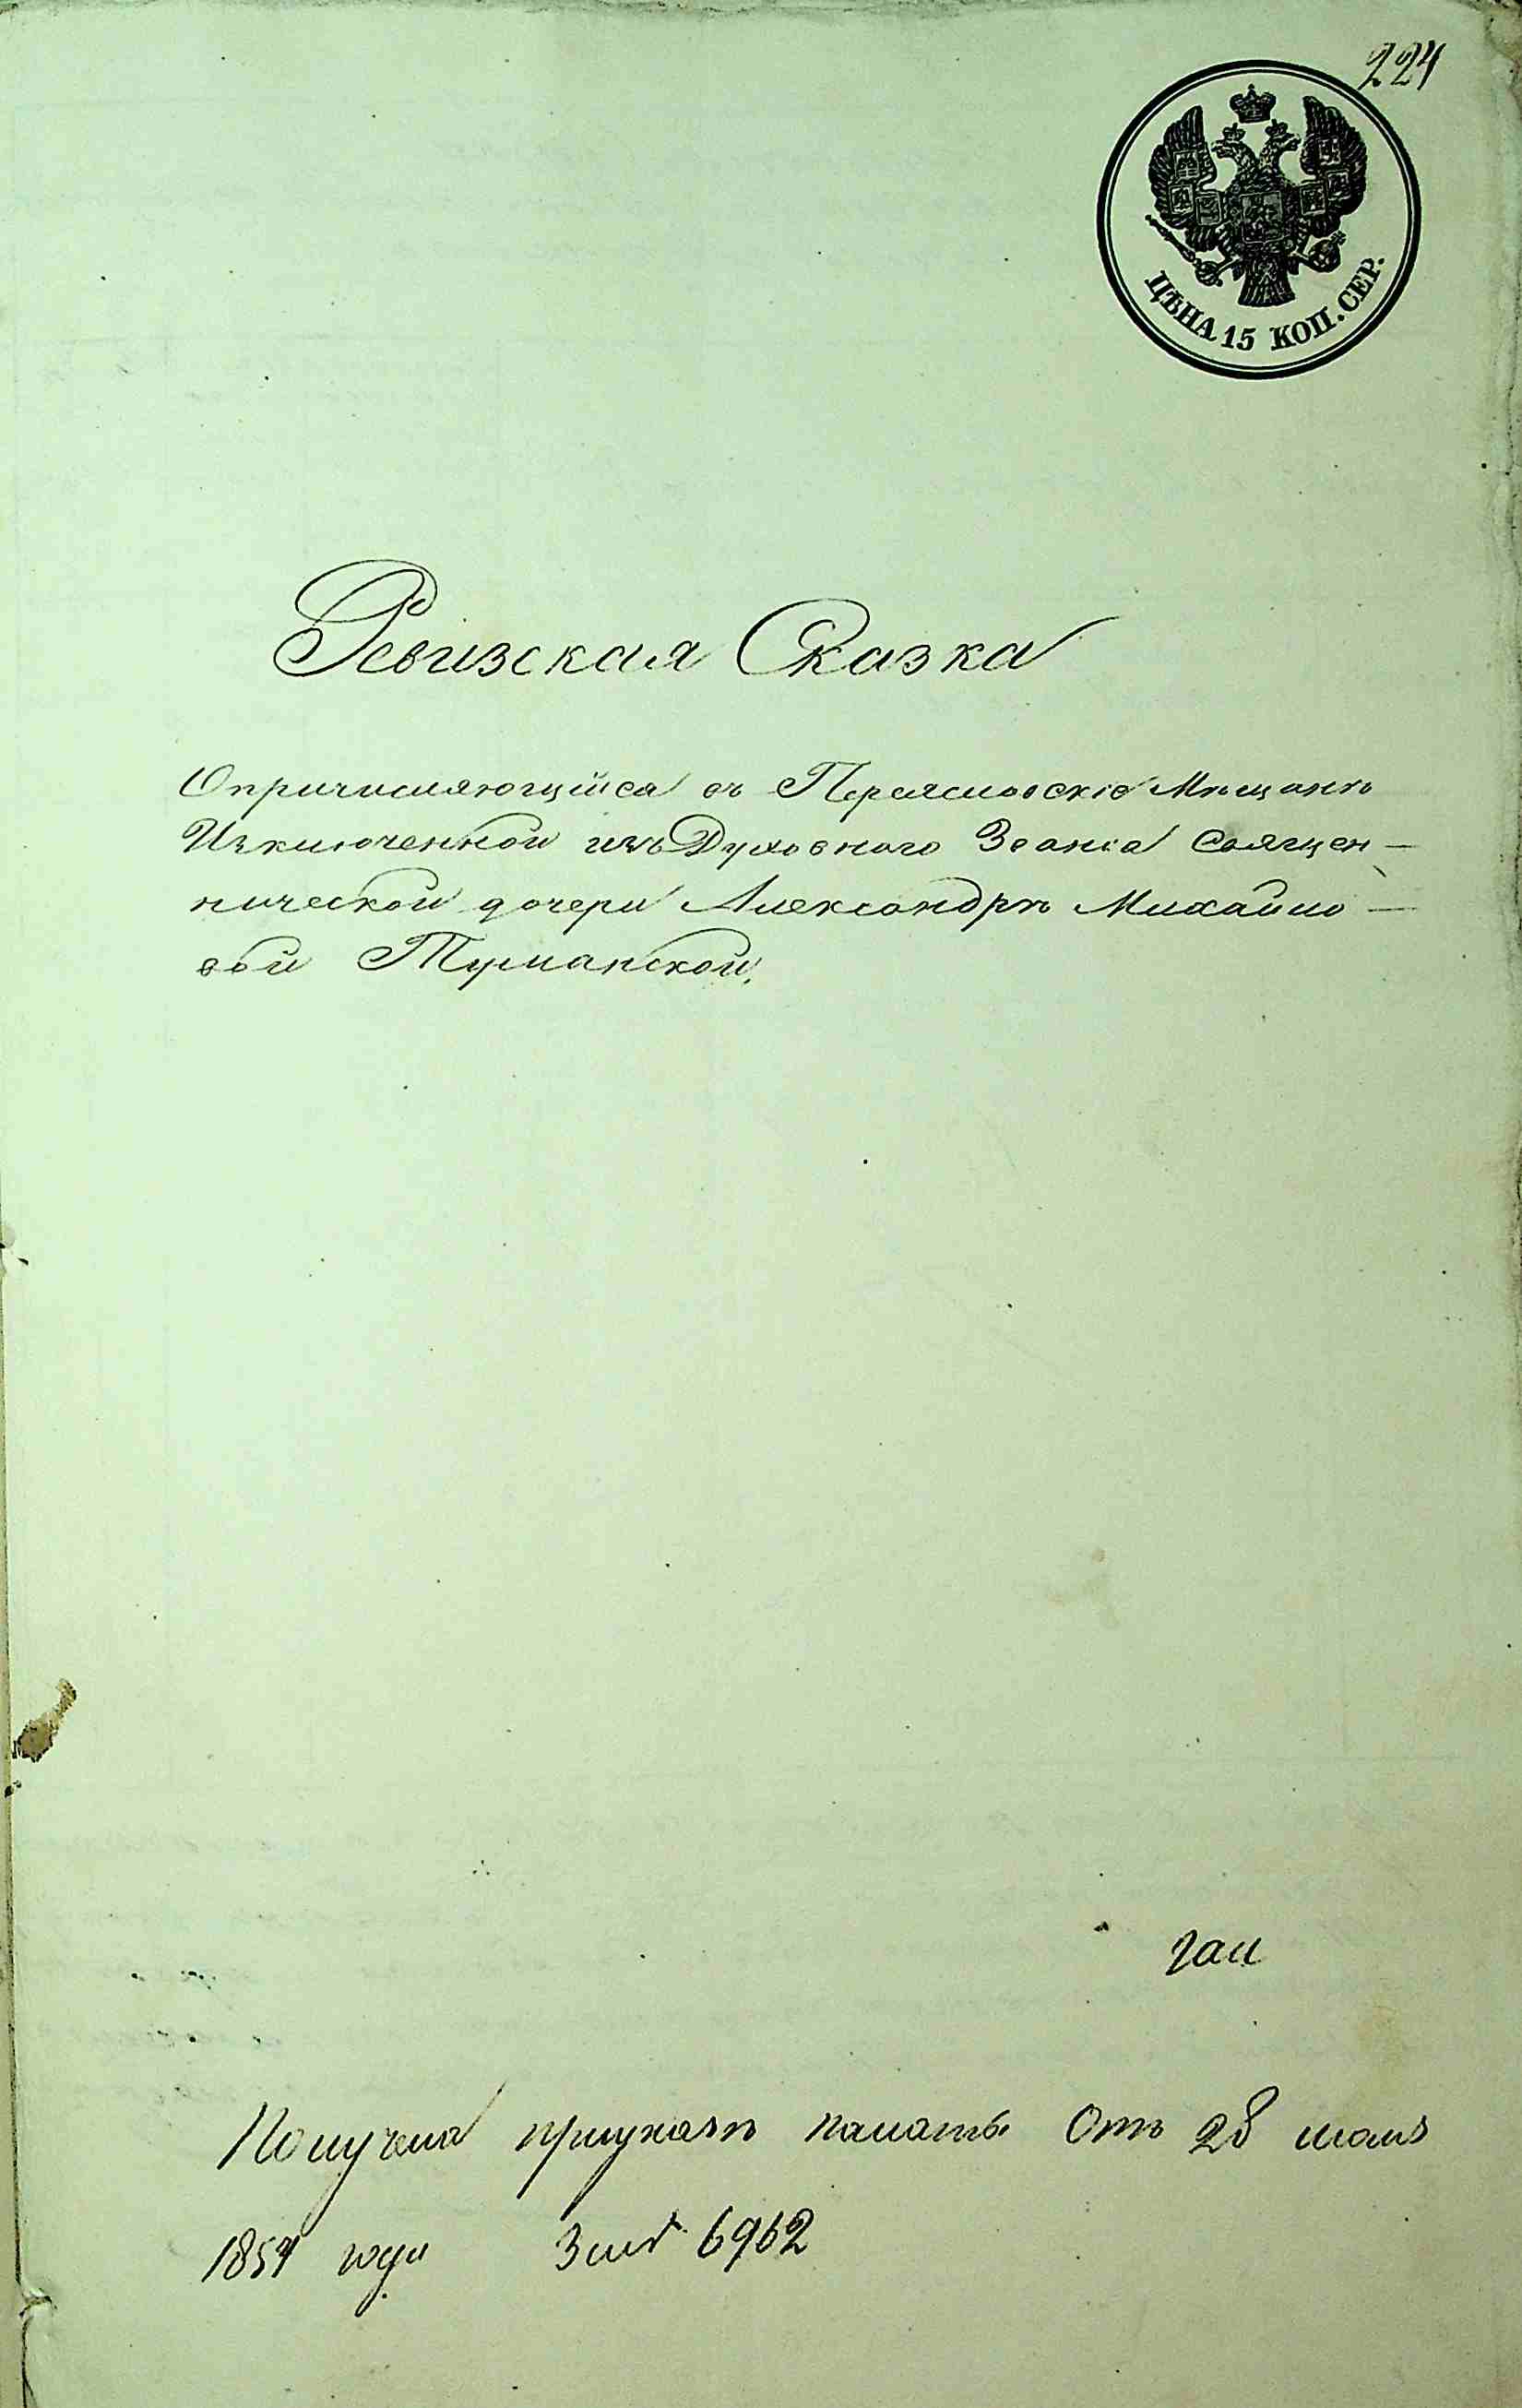 224
ЦѢНА 15 КОП. СЕР.
Ревизская Сказка
О причисляющейся въ Переясловскіе Мѣщанѣ
Изключенной изъ Духовного Званіа Священ-
нической дочери Александрѣ Михайло-
вой Туманской.
Получена приуказѣ палаты Отъ 28 мая
185 года За № 6962